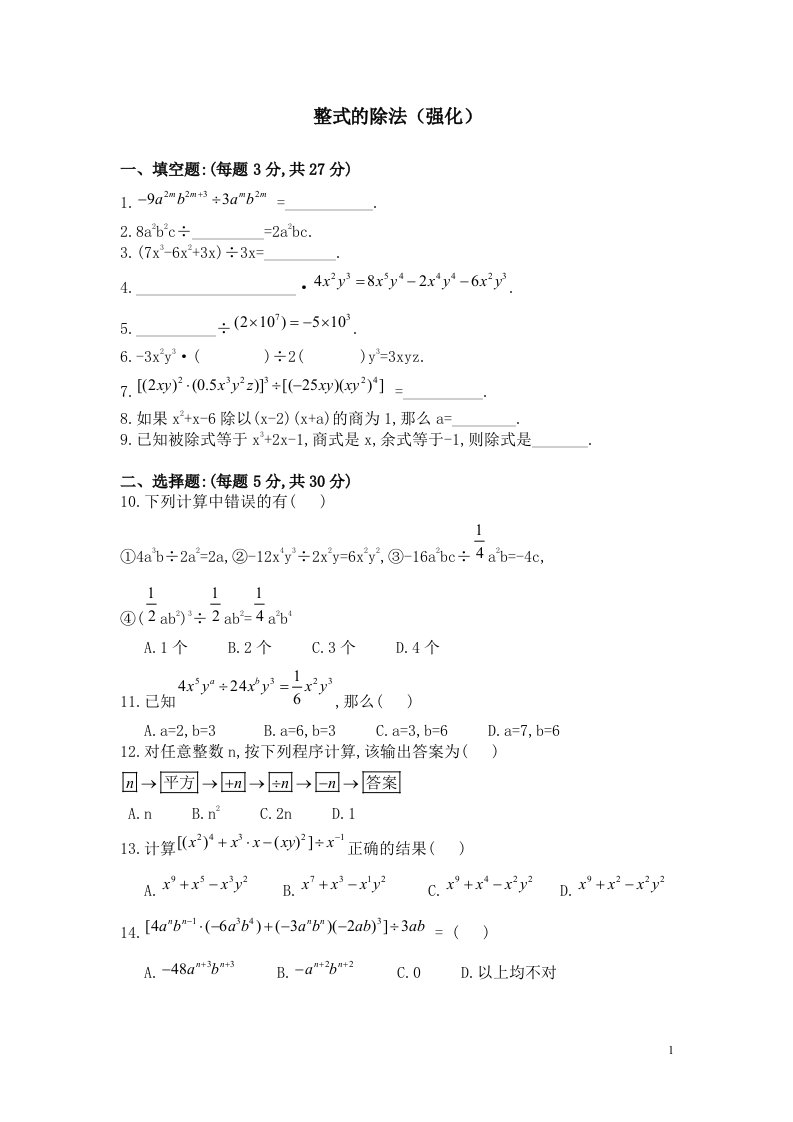 整式的除法（强化）
一、填空题:(每题 3 分,共 27 分)
1. −9a²ᵐb²ᵐ⁺³ ÷ 3aᵐb²ᵐ =___________.
2.8a²b²c÷_________=2a²bc.
3.(7x³-6x²+3x)÷3x=_________.
4.____________________· 4x²y³ = 8x⁵y⁴ − 2x⁴y⁴ − 6x²y³.
5.__________÷ (2×10⁷) = −5×10³.
6.-3x²y³·(        )÷2(       )y³=3xyz.
7. [(2xy)²·(0.5x³y²z)]³ ÷ [(−25xy)(xy²)⁴] =__________.
8.如果 x²+x-6 除以(x-2)(x+a)的商为 1,那么 a=________.
9.已知被除式等于 x³+2x-1,商式是 x,余式等于-1,则除式是_______.
二、选择题:(每题 5 分,共 30 分)
10.下列计算中错误的有(   )
①4a³b÷2a²=2a,②-12x⁴y³÷2x²y=6x²y²,③-16a²bc÷ 1/4 a²b=-4c,
④( 1/2 ab²)³÷ 1/2 ab²= 1/4 a²b⁴
A.1 个     B.2 个     C.3 个     D.4 个
11.已知 4x⁵yᵃ ÷ 24xᵇy³ = 1/6 x²y³ ,那么(   )
A.a=2,b=3      B.a=6,b=3      C.a=3,b=6     D.a=7,b=6
12.对任意整数 n,按下列程序计算,该输出答案为(   )
n → 平方 → +n → ÷n → −n → 答案
A.n     B.n²     C.2n     D.1
13.计算 [(x²)⁴ + x³·x − (xy)²] ÷ x⁻¹ 正确的结果(   )
A. x⁹ + x⁵ − x³y²    B. x⁷ + x³ − x¹y²     C. x⁹ + x⁴ − x²y²   D. x⁹ + x² − x²y²
14. [4aⁿbⁿ⁻¹·(−6a³b⁴) + (−3aⁿbⁿ)(−2ab)³] ÷ 3ab = (   )
A. −48aⁿ⁺³bⁿ⁺³     B. −aⁿ⁺²bⁿ⁺²     C.0     D.以上均不对
1